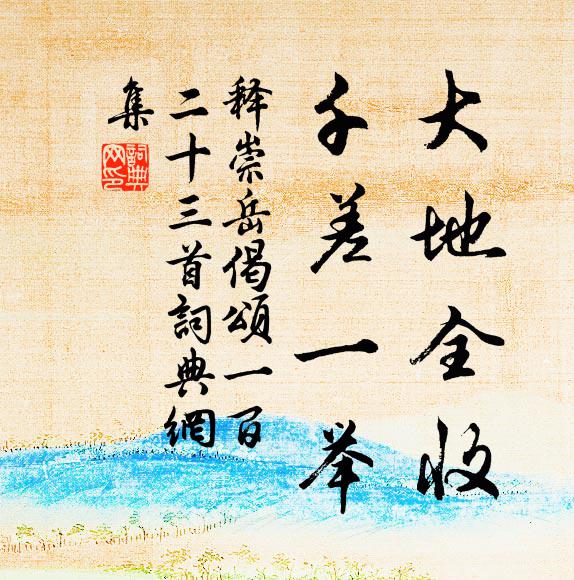 大地全收
千差一举
释崇岳偈頌一百
二十三首詞典網
集
詞典
网印